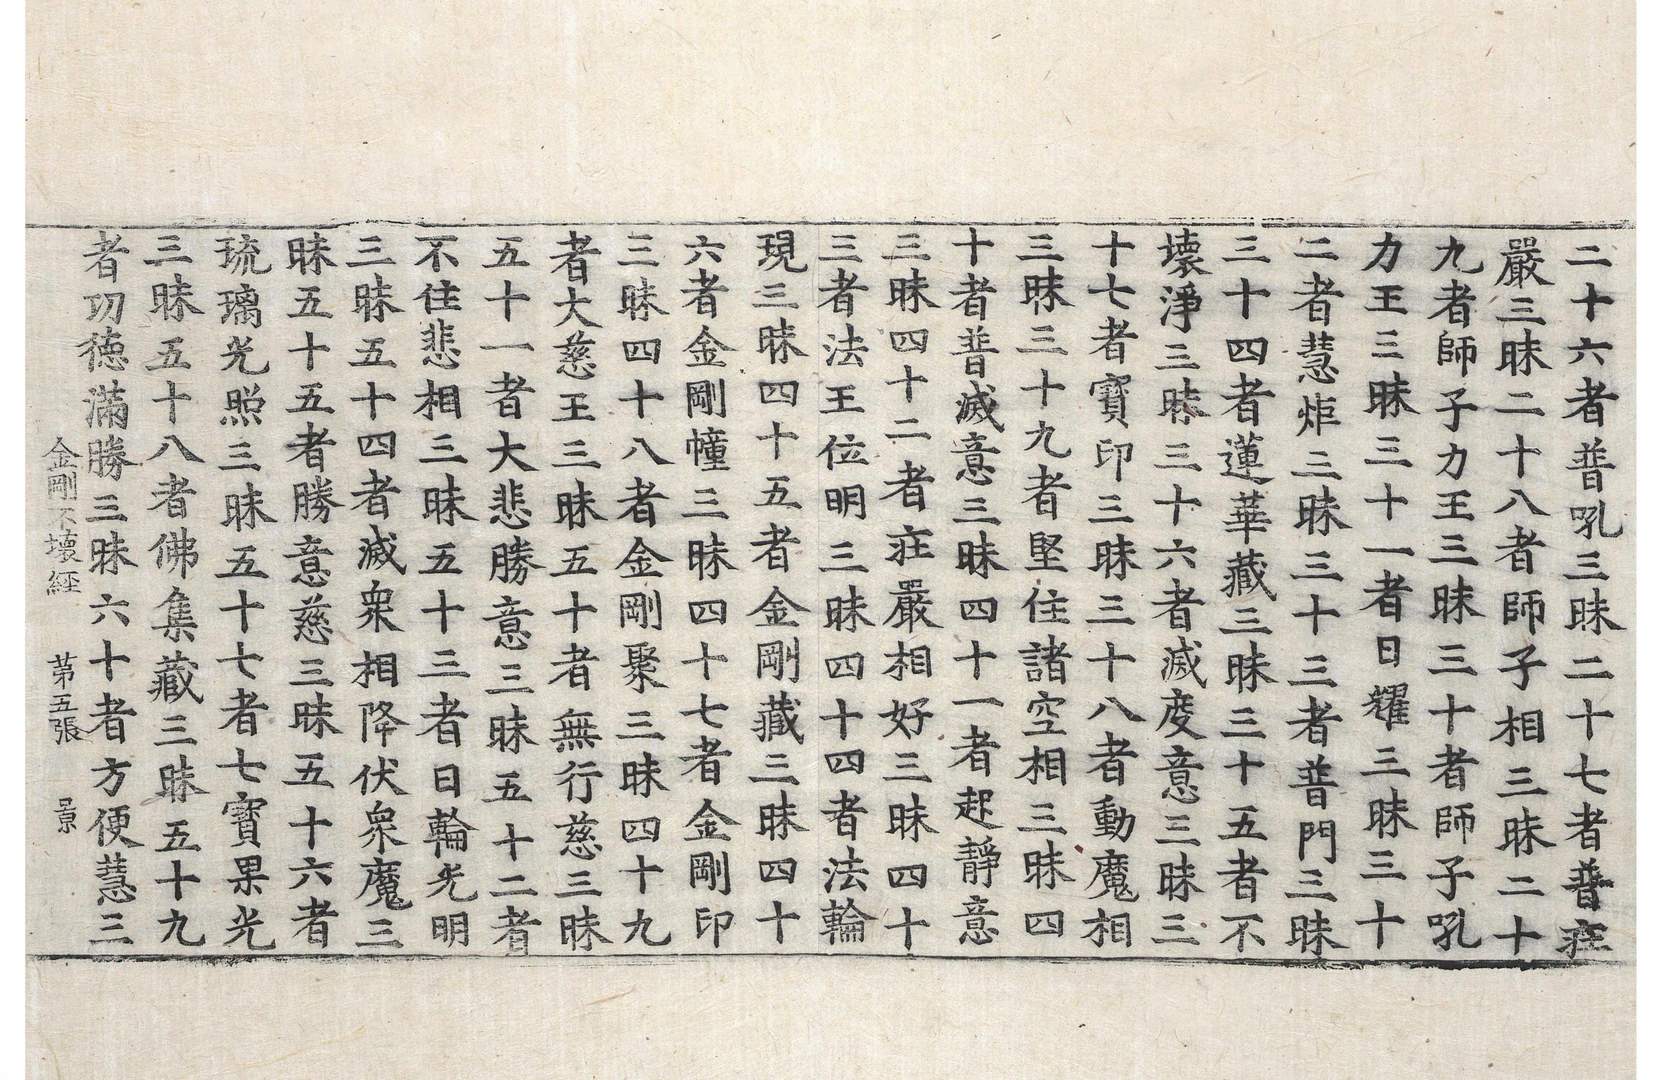 二十六者普吼三昧二十七者普𤖅
嚴三昧二十八者師子相三昧二十
九者師子力王三昧三十者師子吼
力王三昧三十一者日耀三昧三十
二者慧炬三昧三十三者普門三昧
三十四者蓮華藏三昧三十五者不
壞淨三昧三十六者滅度意三昧三
十七者寶印三昧三十八者動魔相
三昧三十九者堅住諸空相三昧四
十者普滅意三昧四十一者起靜意
三昧四十二者莊嚴相好三昧四十
三者法王位明三昧四十四者法輪
現三昧四十五者金剛藏三昧四十
六者金剛幢三昧四十七者金剛印
三昧四十八者金剛聚三昧四十九
者大慈王三昧五十者無行慈三昧
五十一者大悲勝意三昧五十二者
不住悲相三昧五十三者日輪光明
三昧五十四者滅衆相降伏衆魔三
昧五十五者勝意慈三昧五十六者
琉璃光照三昧五十七者七寶果光
三昧五十八者佛集藏三昧五十九
者功德滿勝三昧六十者方便慧三
金剛不壞經 第五張 景